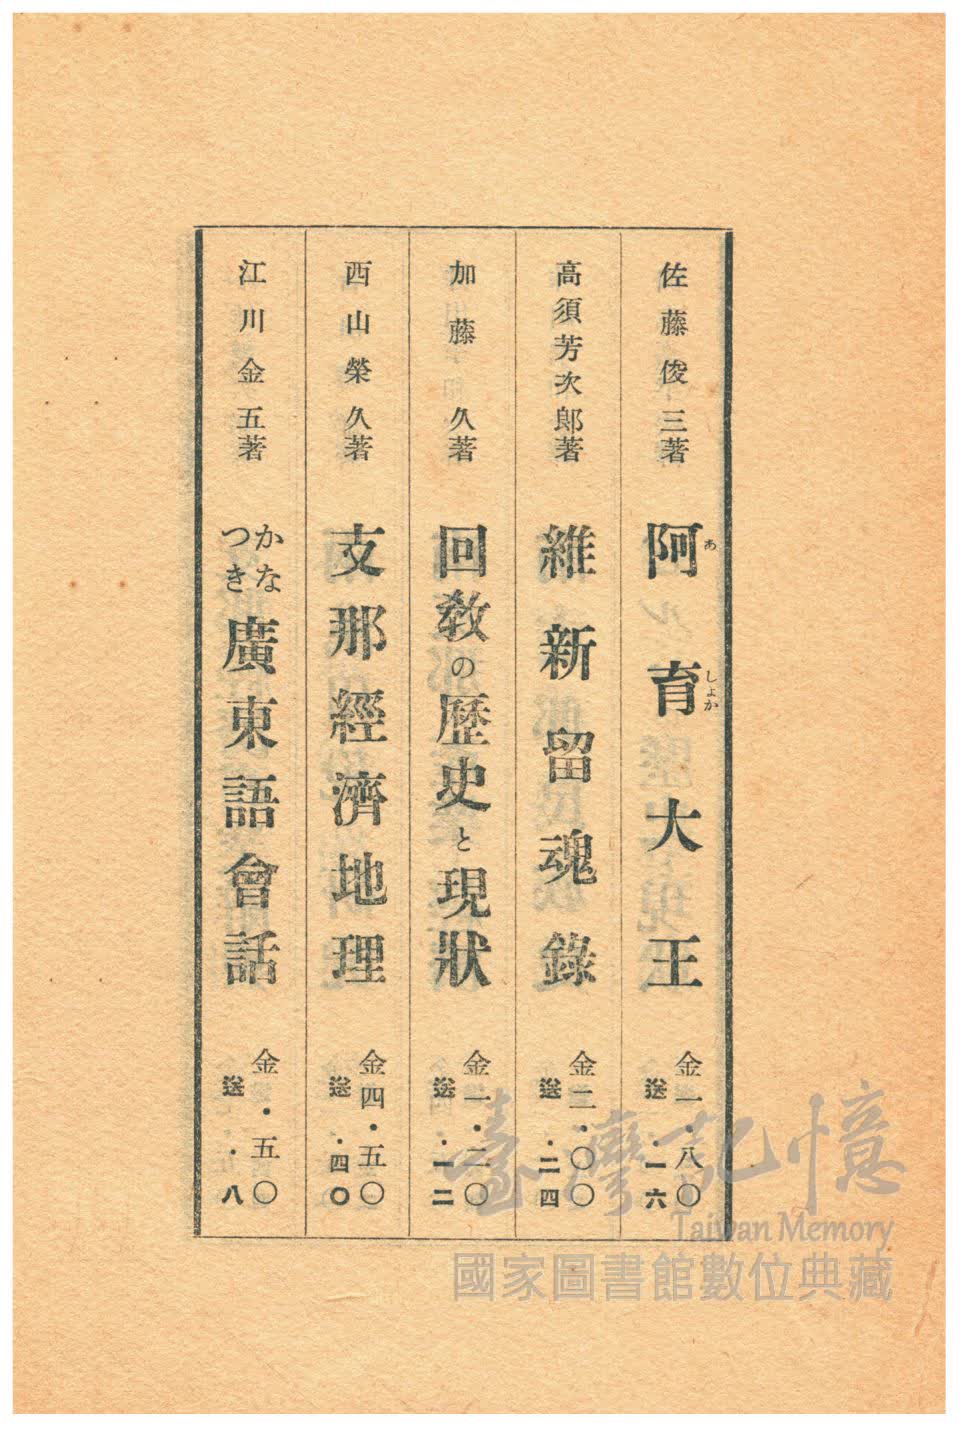 佐藤俊三著
阿育大王
あ
しょか
金一・八〇
送・一六
高須芳次郎著
維新留魂錄
金二・〇〇
送・二四
加藤久著
回教の歴史と現狀
金一・二〇
送・一二
西山榮久著
支那經濟地理
金四・五〇
送・四〇
江川金五著
かな
つき
廣東語會話
金・五〇
送・八
臺灣記憶
Taiwan Memory
國家圖書館數位典藏